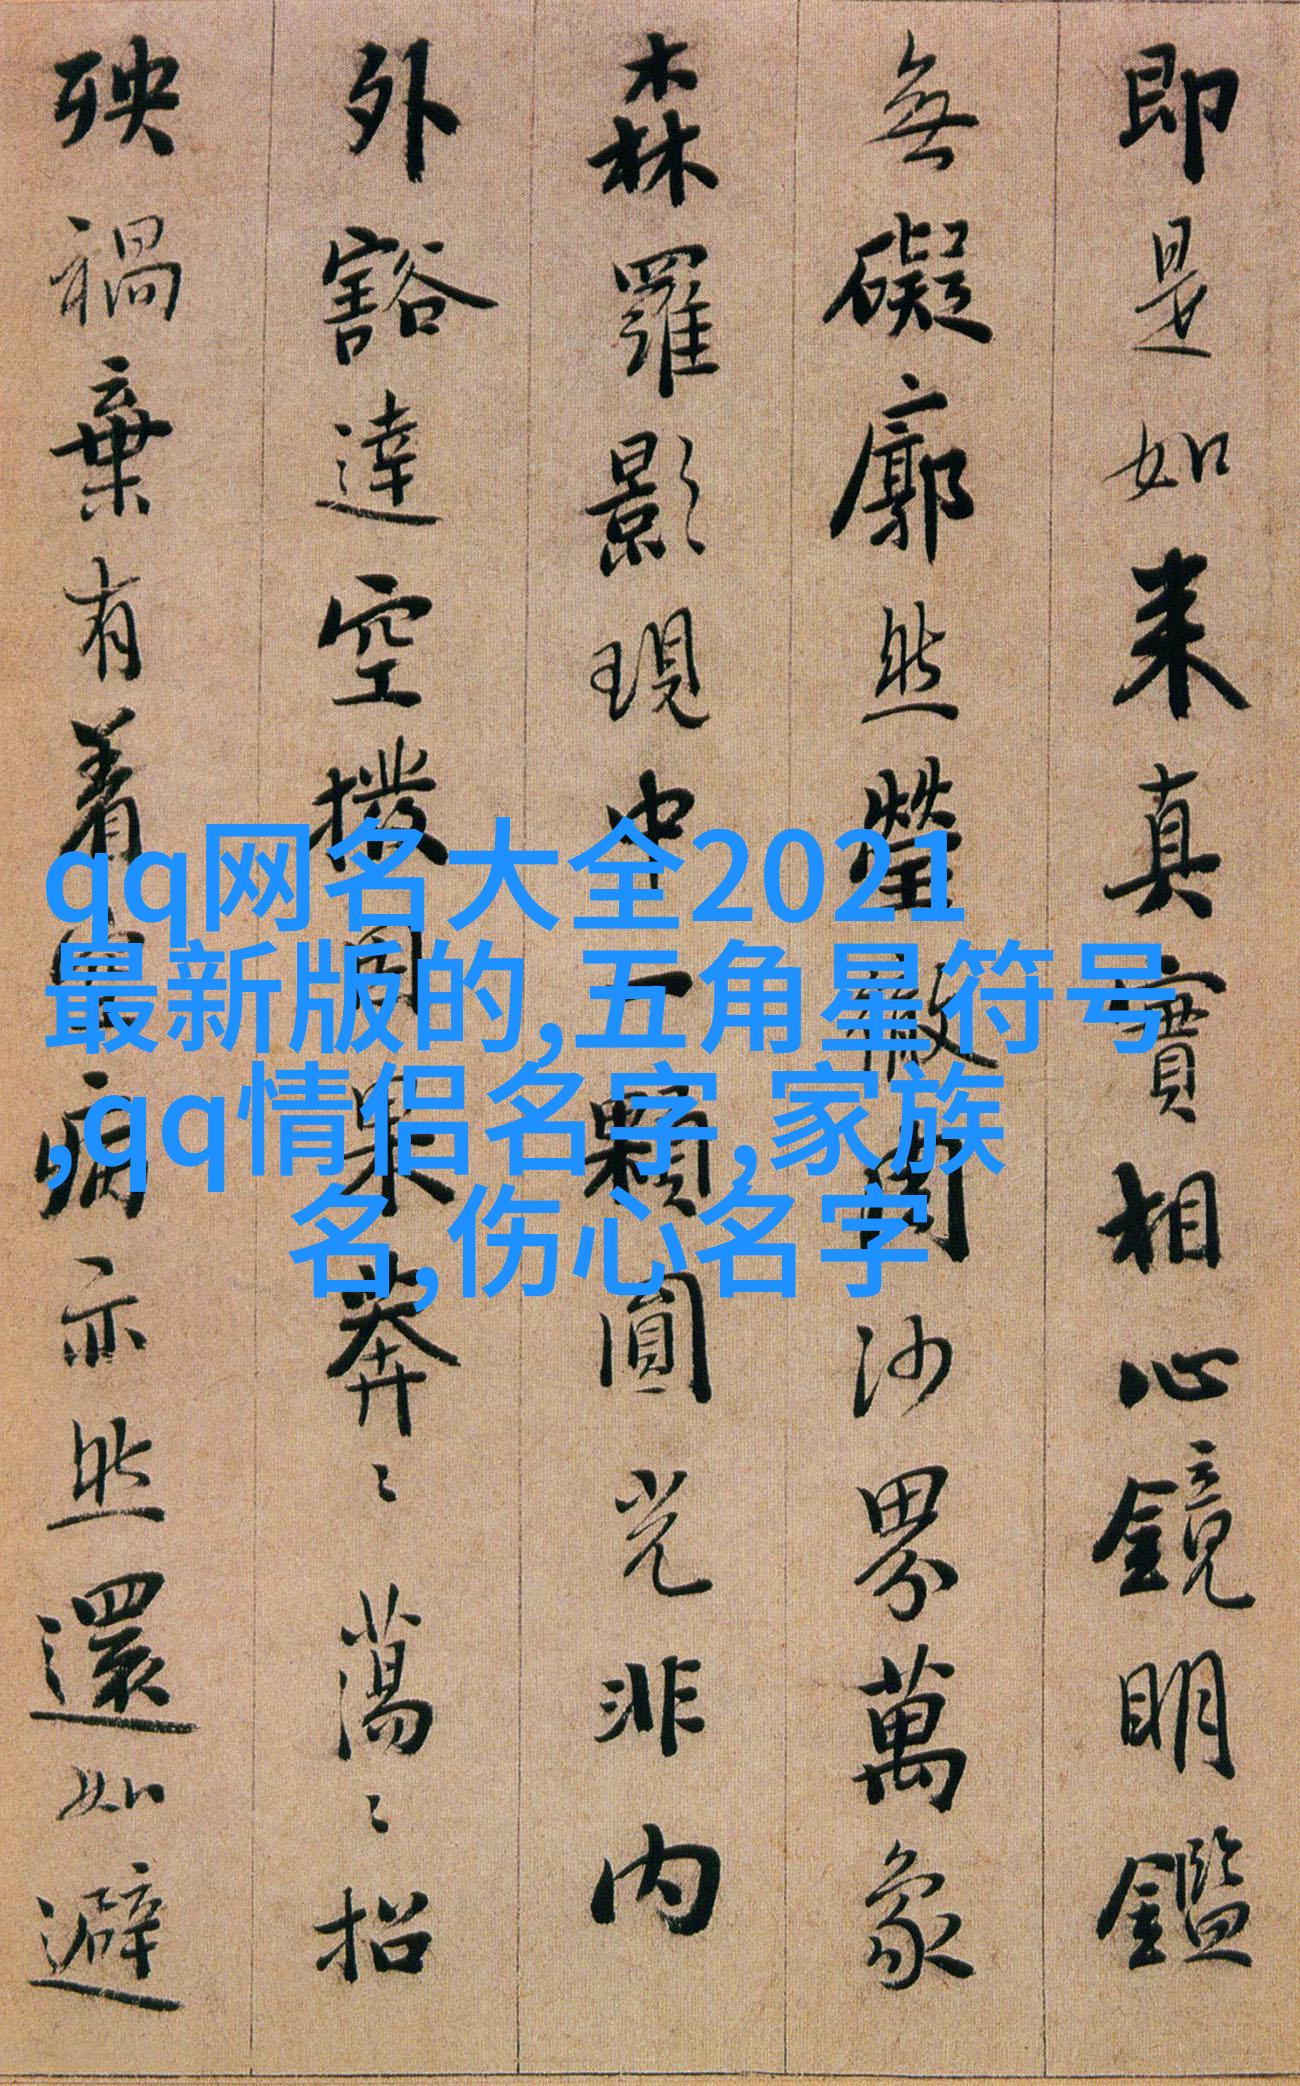 即是如来真實相心鏡明鑑
無礙廓然瑩徹周沙界萬象
森羅影現中一顆圓光非内
外豁達空撥因果莽〻蕩〻招
殃禍棄有着空病亦然還如避
qq网名大全2021
最新版的,五角星符号
,qq情侣名字,家族
名,伤心名字